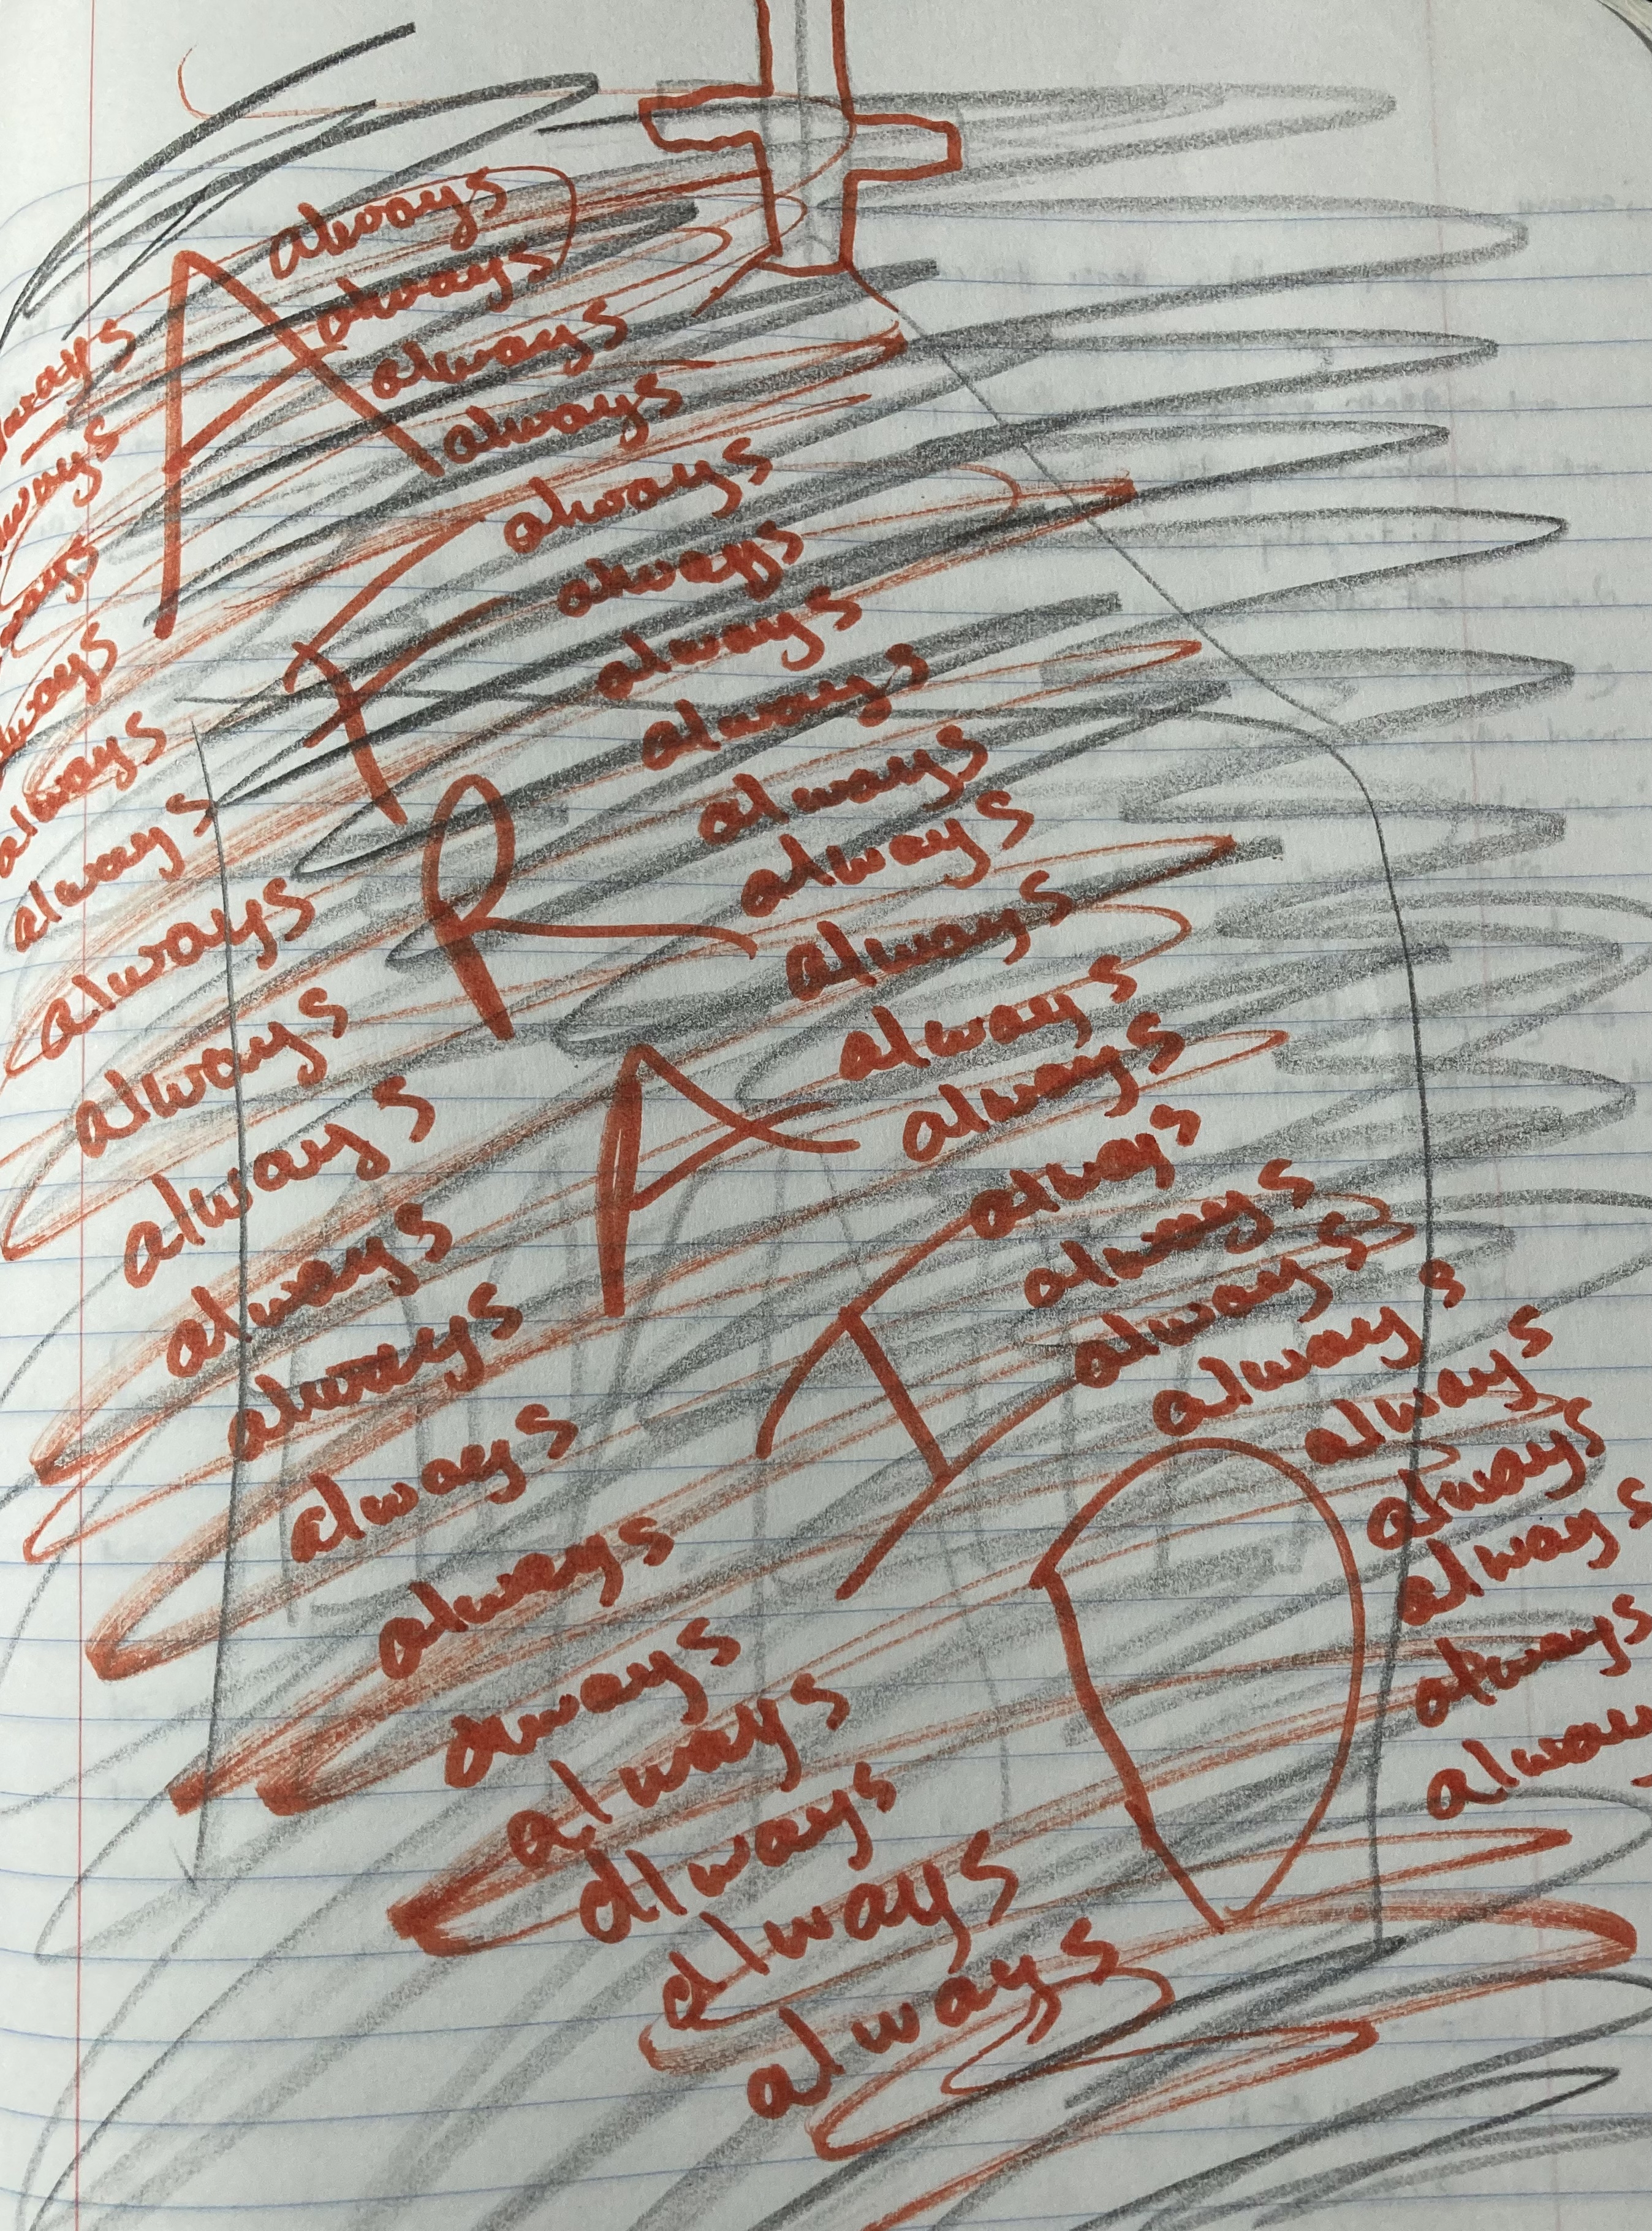 AFRAID
always
always
always
always
always
always
always
always
always
always
always
always
always
always
always
always
always
always
always
always
always
alway
always
ways
ways
lways
always
always
always
always
always
always
always
always
always
aways
always
always
always
always